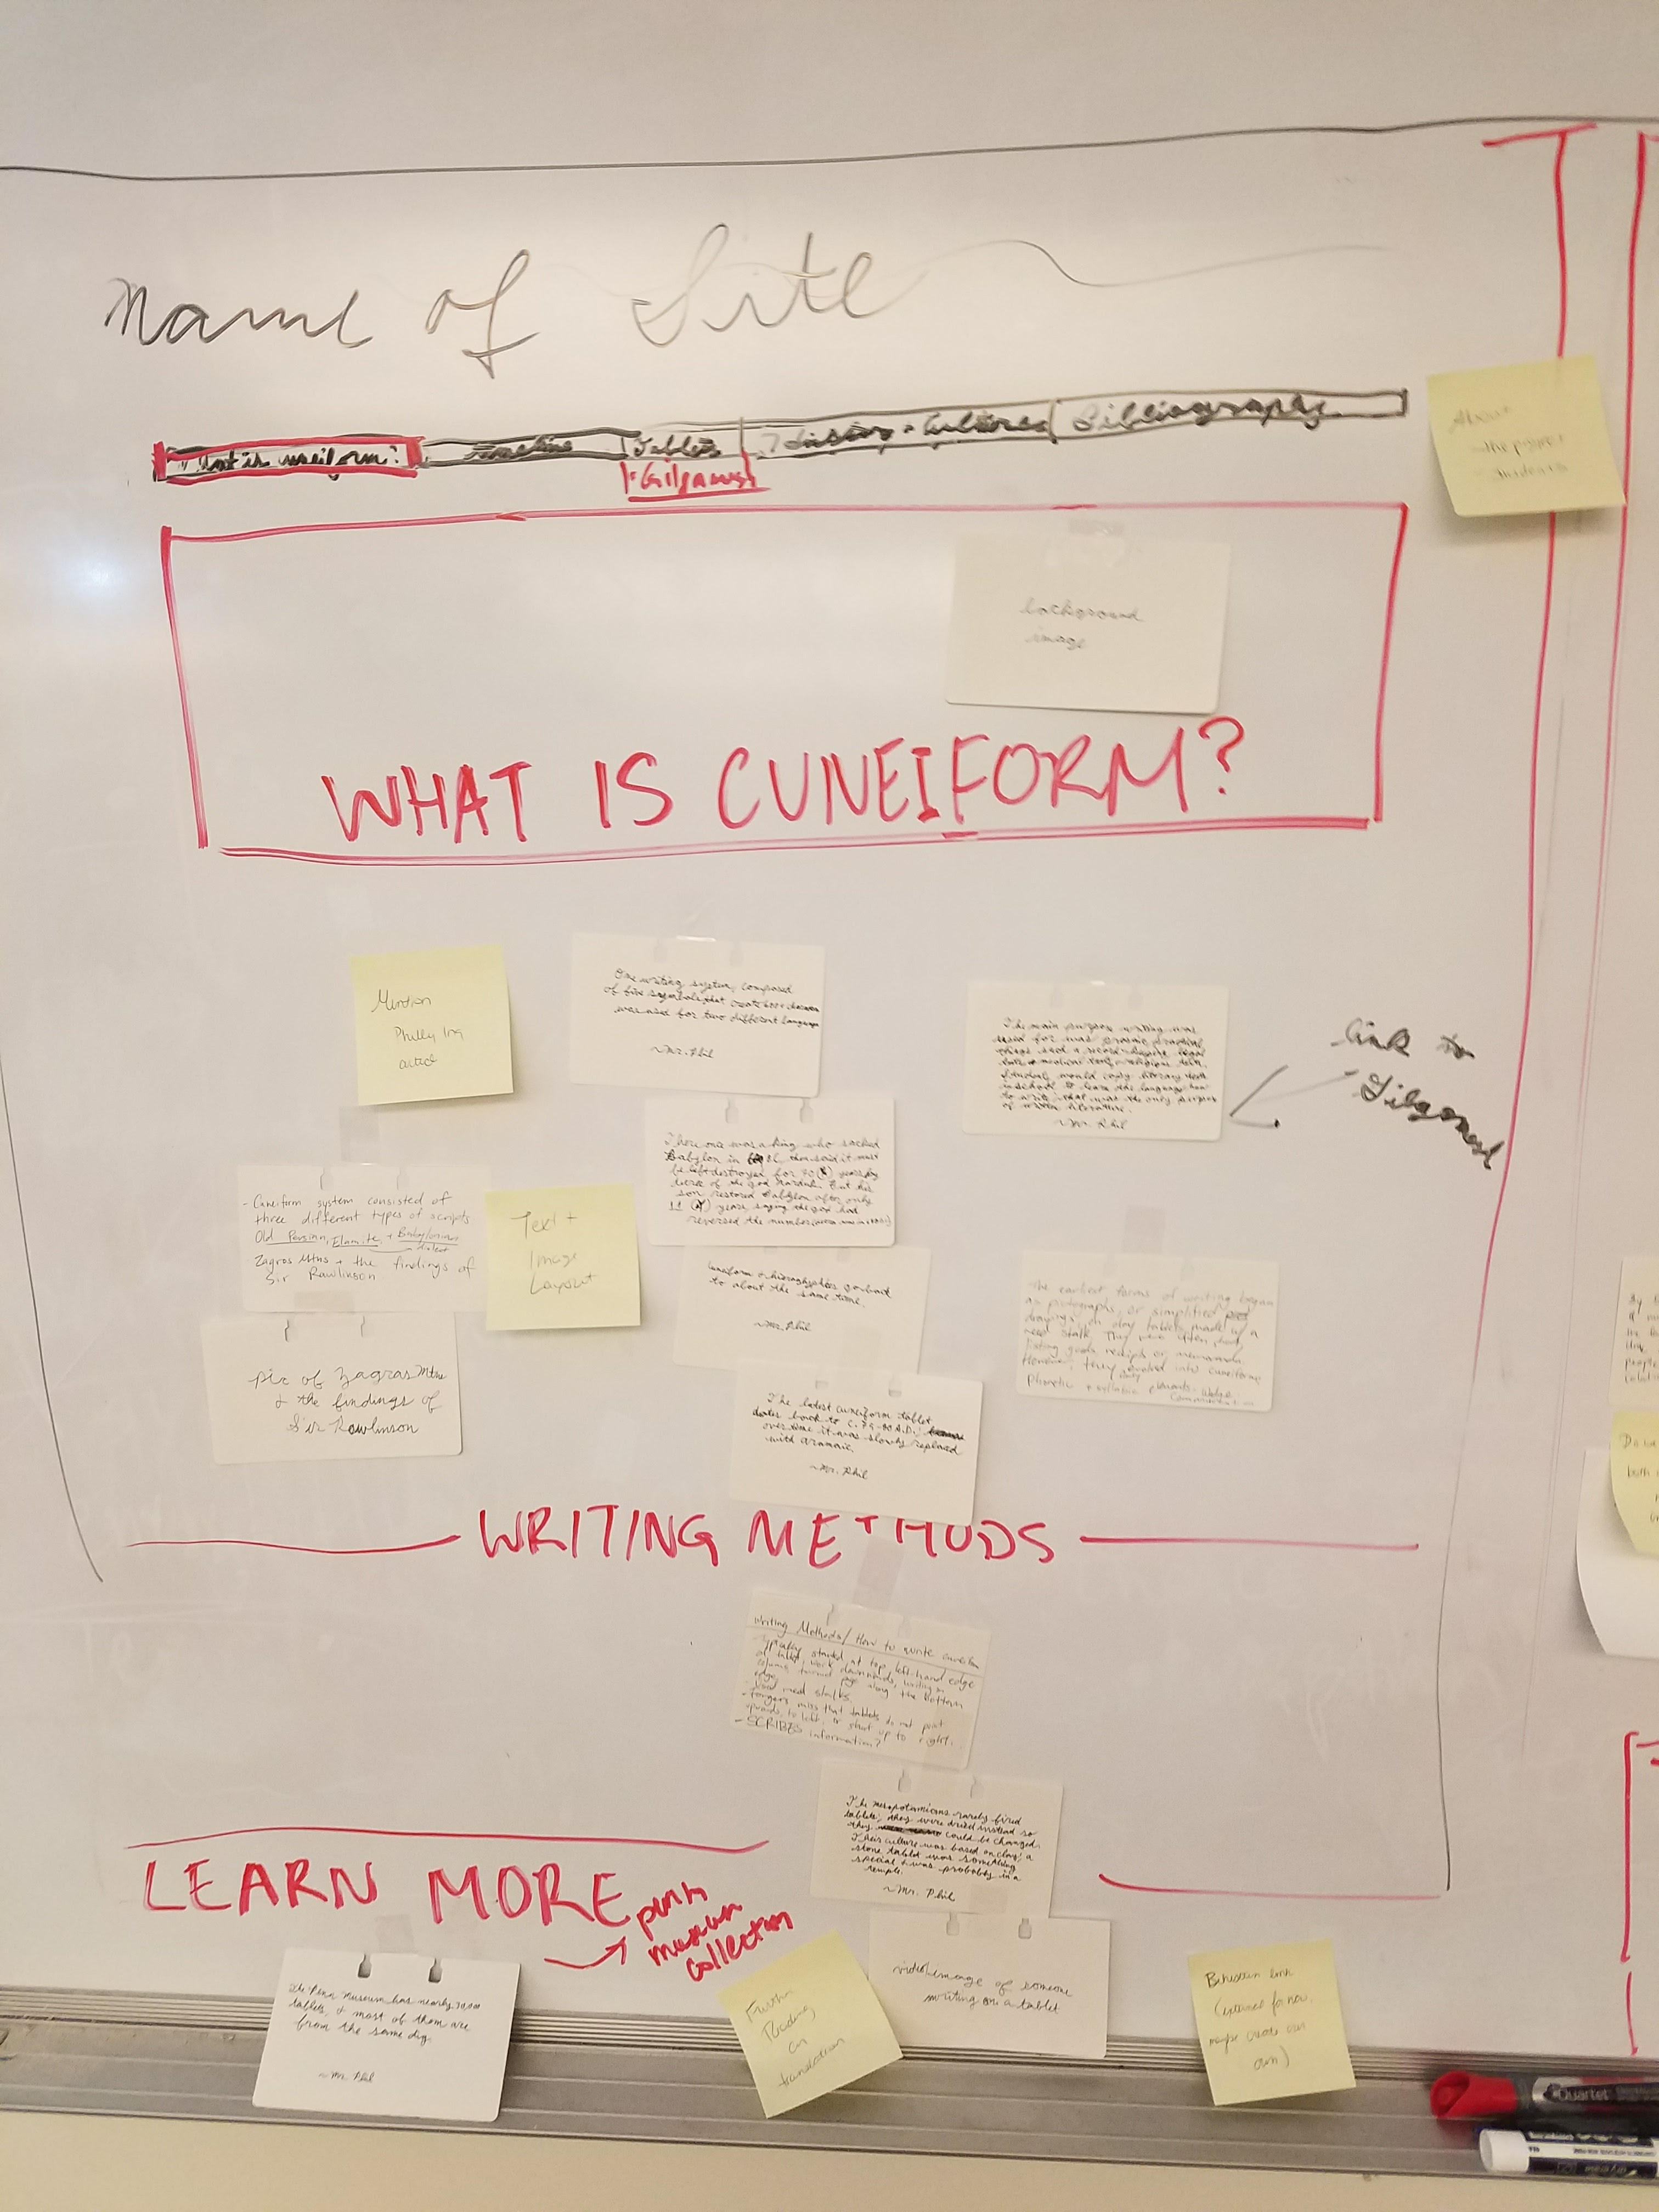 Name of Site
What is uneiform?
Timeline
Tablets
History + Cultures
Bibliography
Gilgamesh
About
- the project
- students
background
image
WHAT IS CUNEIFORM?
Mention
Philly Inq
One writing system, composed
of five symbols that create 600+
was used for two different language
~Mr. Phil
The main purpose writing was
used for was
things such a record-keeping, legal
religious texts.
Students would copy literary texts
in school to learn the language how
to write; that was the only purpose
of written literature.
~Mr. Phil
link to
Gilgamesh
There once was a king who sacked
Babylon in then said it must
be left destroyed for 70 years by
decree of the god Marduk. But his
son restored Babylon after only
11 years, saying the god had
reversed the number
- Cuneiform system consisted of
three different types of scripts
Old Persian, Elamite, + Babylonian
Zagros Mtns + the findings of
Sir Rawlinson
Text +
Image
Layout
Cuneiform + hieroglyphics go back
to about the same time.
~Mr. Phil
The earliest forms of writing began
as pictographs, or simplified
drawings, on clay tablets made w/ a
reed stalk. They were often short,
listing goods receipts or memoranda.
However, they evolved into cuneiform,
phonetic + syllabic elements. wedge
pic of Zagros Mtns
+ the findings of
Sir Rawlinson
The latest cuneiform tablet
dates back to A.D.;
over time it was slowly replaced
with aramaic.
~Mr. Phil
WRITING METHODS
Writing Methods / How to write cuneiform
- typically started at top left-hand edge
of tablet, work downwards, writing in
columns, turned page along the bottom
edge
- used reed stalks
- forgers miss that tablets do not point
upwards, to left, or short up to right.
- SCRIBES information?
The mesopotamians rarely fired
tablets; they were dried instead so
they could be changed.
Their culture was based on clay; a
stone tablet was something
special + was probably in a
temple.
~Mr. Phil
LEARN MORE
penn
museum
collection
The Penn Museum has nearly 30,000
tablets, + most of them are
from the same dig.
~Mr. Phil
Further
Reading
on
translation
video/image of someone
writing on a tablet
Behistun link
(external for now,
maybe create our
own)
Quartet